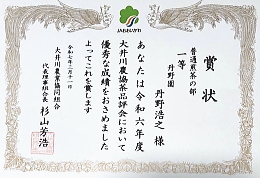 JAおおいがわ
賞状
普通煎茶の部
一等
丹野園
丹野浩之 様
あなたは令和六年度
大井川農協茶品評会において
優秀な成績をおさめました
よってこれを賞します
令和七年二月十一日
大井川農業協同組合
代表理事組合長 杉山芳浩